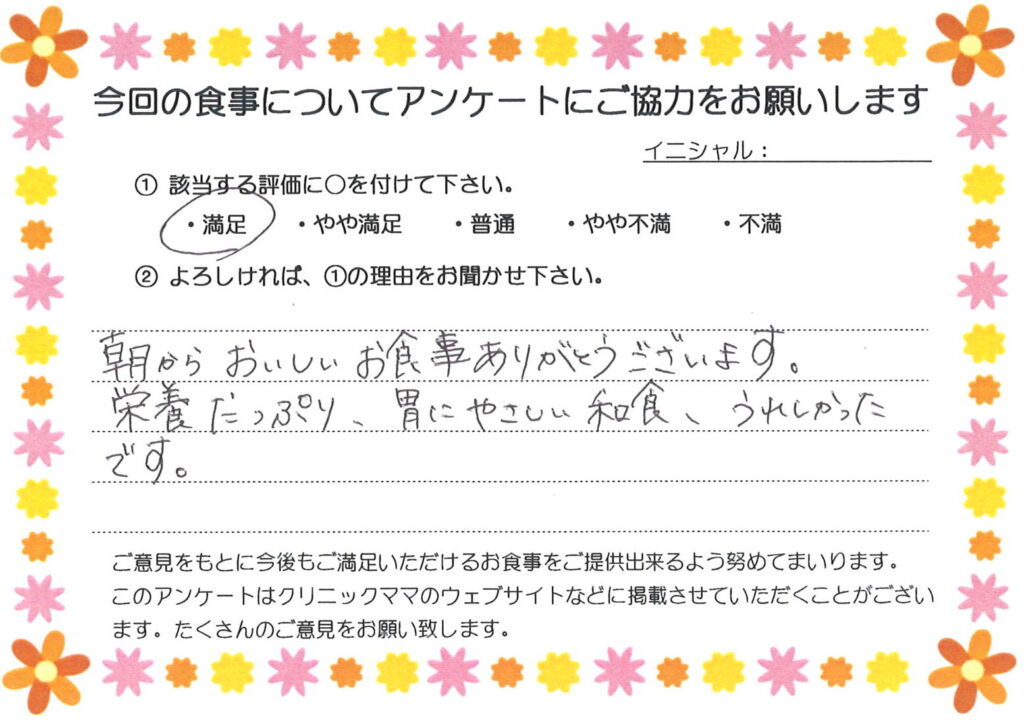 今回の食事についてアンケートにご協力をお願いします
イニシャル：
① 該当する評価に○を付けて下さい。
・満足 ・やや満足 ・普通 ・やや不満 ・不満
② よろしければ、①の理由をお聞かせ下さい。
朝から おいしい お食事ありがとうございます。
栄養たっぷり、胃にやさしい 和食、うれしかった
です。
ご意見をもとに今後もご満足いただけるお食事をご提供出来るよう努めてまいります。
このアンケートはクリニックママのウェブサイトなどに掲載させていただくことがござい
ます。たくさんのご意見をお願い致します。